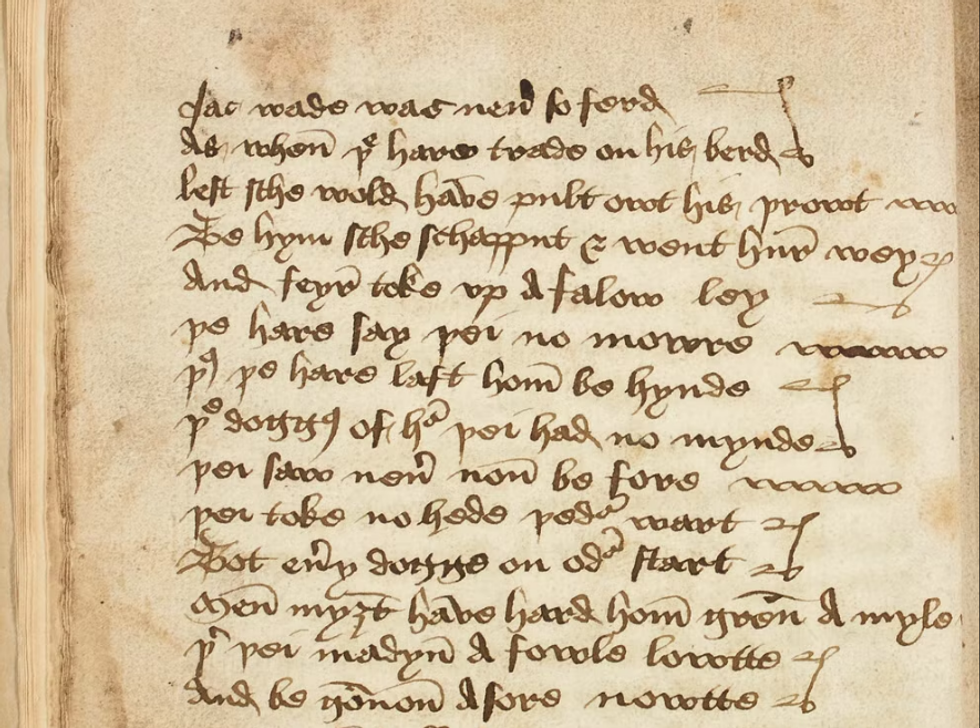 Jac wade was neu̅ so ferd
As when̅ þe hare trade on his berd
lest sche wold hav̅e pult owt his prowt
Be hym sche schapput & went hur̅ wey
And feyr̅ toke vp A falow ley
þe hare say þei no mowre
þus þe hare laft hom̅ be hynde
þe doggus of hᵃ þei had no mynde
þei saw neu̅ non̅ be fore
þei toke no hede þedᵃ wart
Bot eu̅y dogge on odᵃ start
Men̅ myȝt hav̅e hard hom̅ gren̅ A myle
þᵉ þei madyn̅ A fowle lowtte
And be gon̅on̅ A sore rowtte